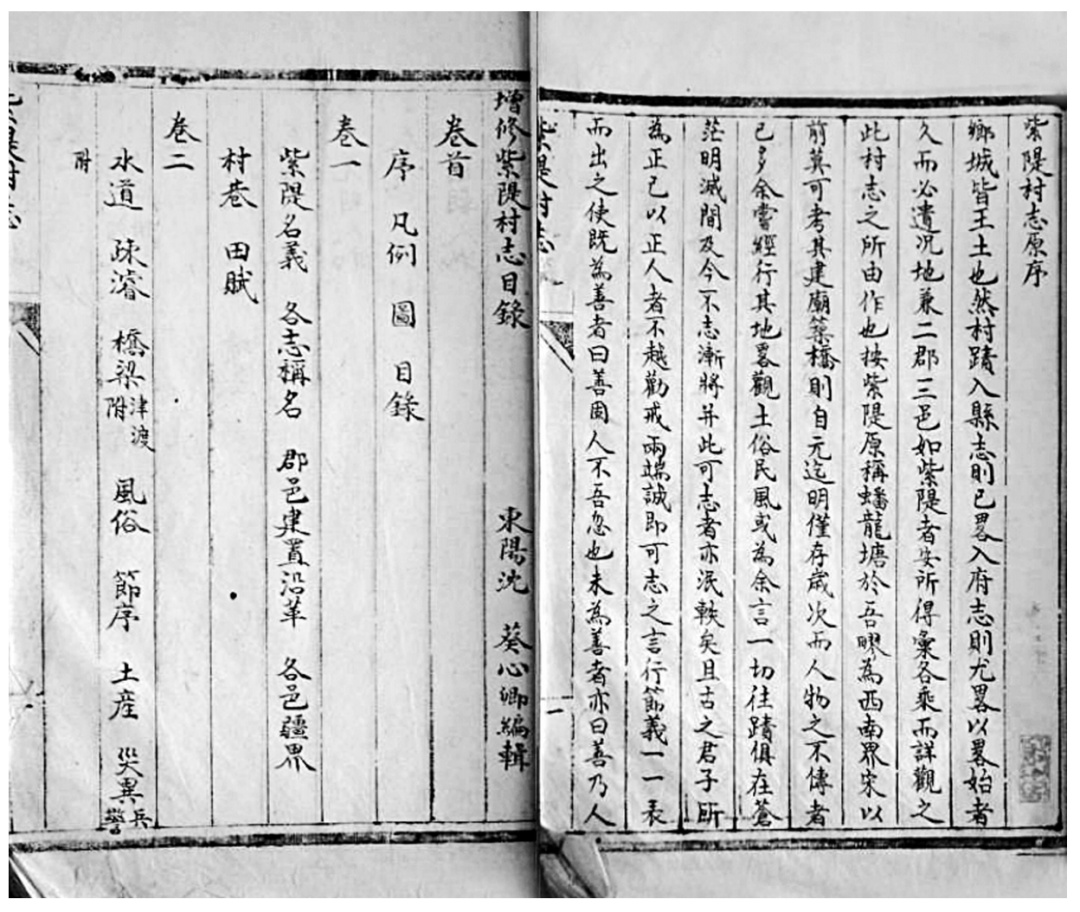 紫隄村志原序
鄉城皆王土也然村蹟入縣志則已畧入府志則尤畧以畧始者
久而必遺況地兼二郡三邑如紫隄者安所得彙各乘而詳觀之
此村志之所由作也按紫隄原稱蟠龍塘於吾疁為西南界宋以
前莫可考其建廟築橋則自元迄明僅存歲次而人物之不傳者
已多余嘗經行其地畧觀土俗民風或為余言一切往蹟俱在蒼
茫明滅間及今不志漸將并此可志者亦泯軼矣且古之君子所
為正己以正人者不越勸戒兩端誠即可志之言行節義一一表
而出之使既為善者曰善固人不吾忽也未為善者亦曰善乃人
紫隄村志
一
增修紫隄村志目錄
東陽沈 葵心卿編輯
卷首
序 凡例 圖 目錄
卷一
紫隄名義 各志稱名 郡邑建置沿革 各邑疆界
村巷 田賦
卷二
水道 疎濬 橋梁津渡附 風俗 節序 土產 災異兵警
附
村志